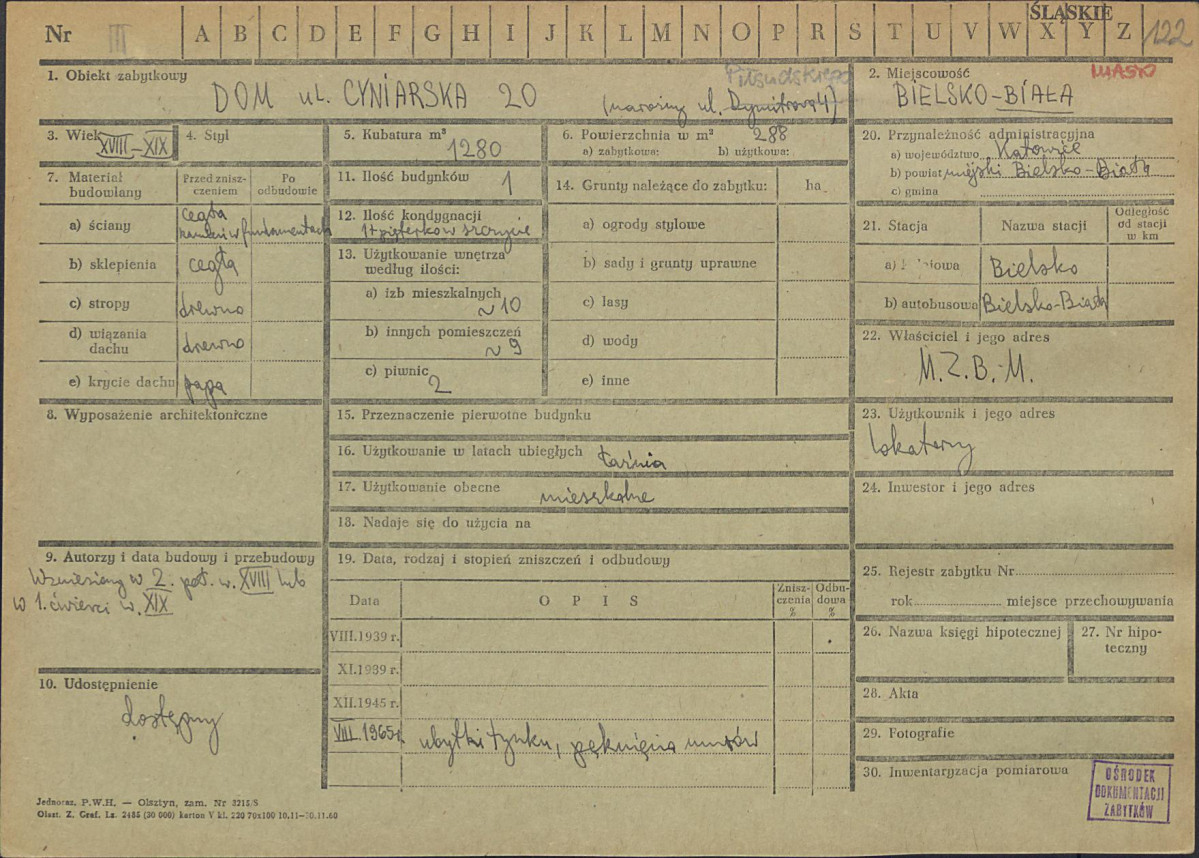 Nr III A B C D E F G H I J K L M N O P R S T U V W X Y Z 122
ŚLĄSKIE
1. Obiekt zabytkowy
DOM UL. CYNIARSKA 20
Piłsudskiego
(narożny ul. Dymitrowa 4)
2. Miejscowość
MIASTO
BIELSKO-BIAŁA
3. Wiek XVIII-XIX
4. Styl
5. Kubatura m³
1280
6. Powierzchnia w m² 288
a) zabytkowa: b) użytkowa:
20. Przynależność administracyjna
a) województwo Katowice
b) powiat miejski Bielsko-Biała
c) gmina
7. Materiał budowlany
Przed zniszczeniem
Po odbudowie
a) ściany
cegła
kamień w fundamentach
b) sklepienia cegła
c) stropy drewno
d) wiązania dachu drewno
e) krycie dachu papa
11. Ilość budynków 1
12. Ilość kondygnacji
1 + pięterko w szczycie
13. Użytkowanie wnętrza według ilości:
a) izb mieszkalnych
~10
b) innych pomieszczeń
~9
c) piwnic
2
14. Grunty należące do zabytku: ha
a) ogrody stylowe
b) sady i grunty uprawne
c) lasy
d) wody
e) inne
21. Stacja
Nazwa stacji
Odległość od stacji w km
a) Bielsko
b) autobusowa Bielsko-Biała
22. Właściciel i jego adres
M.Z.B.M.
8. Wyposażenie architektoniczne
15. Przeznaczenie pierwotne budynku
16. Użytkowanie w latach ubiegłych łaźnia
17. Użytkowanie obecne mieszkalne
18. Nadaje się do użycia na
23. Użytkownik i jego adres
lokatorzy
24. Inwestor i jego adres
9. Autorzy i data budowy i przebudowy
Wzniesiony w 2. poł. w. XVIII lub
w 1. ćwierci w. XIX
19. Data, rodzaj i stopień zniszczeń i odbudowy
Data
OPIS
Zniszczenia %
Odbudowa %
VIII.1939 r.
XI.1939 r.
XII.1945 r.
VIII. 1965r. ubytki tynku, pęknięcia murów
25. Rejestr zabytku Nr
rok miejsce przechowywania
26. Nazwa księgi hipotecznej
27. Nr hipoteczny
10. Udostępnienie
dostępny
28. Akta
29. Fotografie
30. Inwentaryzacja pomiarowa
OŚRODEK
DOKUMENTACJI
ZABYTKÓW
Jednoraz. P.W.H. — Olsztyn, zam. Nr 3215/S
Olszt. Z. Graf. Lz. 2485 (30 000) karton V kl. 220 70x100 10.11-30.11.60